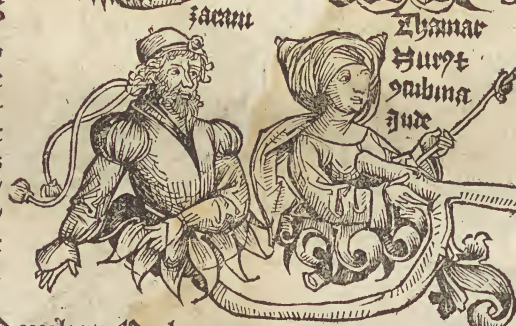 zaram
Thamar
Nurꝰ ⁊
ꝯcubina
Jude